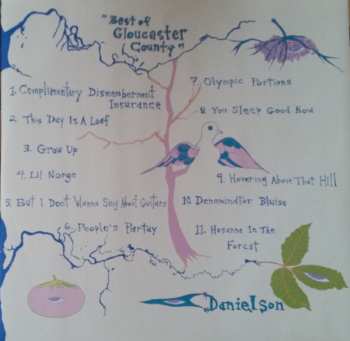 "Best of
Gloucaster
County"
1. Complimentary Dismemberment
Insurance
2. This Day Is A Loaf
3. Grow Up
4. Lil Norge
5. But I Don't Wanna Sing About Guitars
6. People's Partay
7. Olympic Portions
8. You Sleep Good Now
9. Hovering Above That Hill
10. Denominator Bluise
11. Hosanna In The
Forest
Danielson